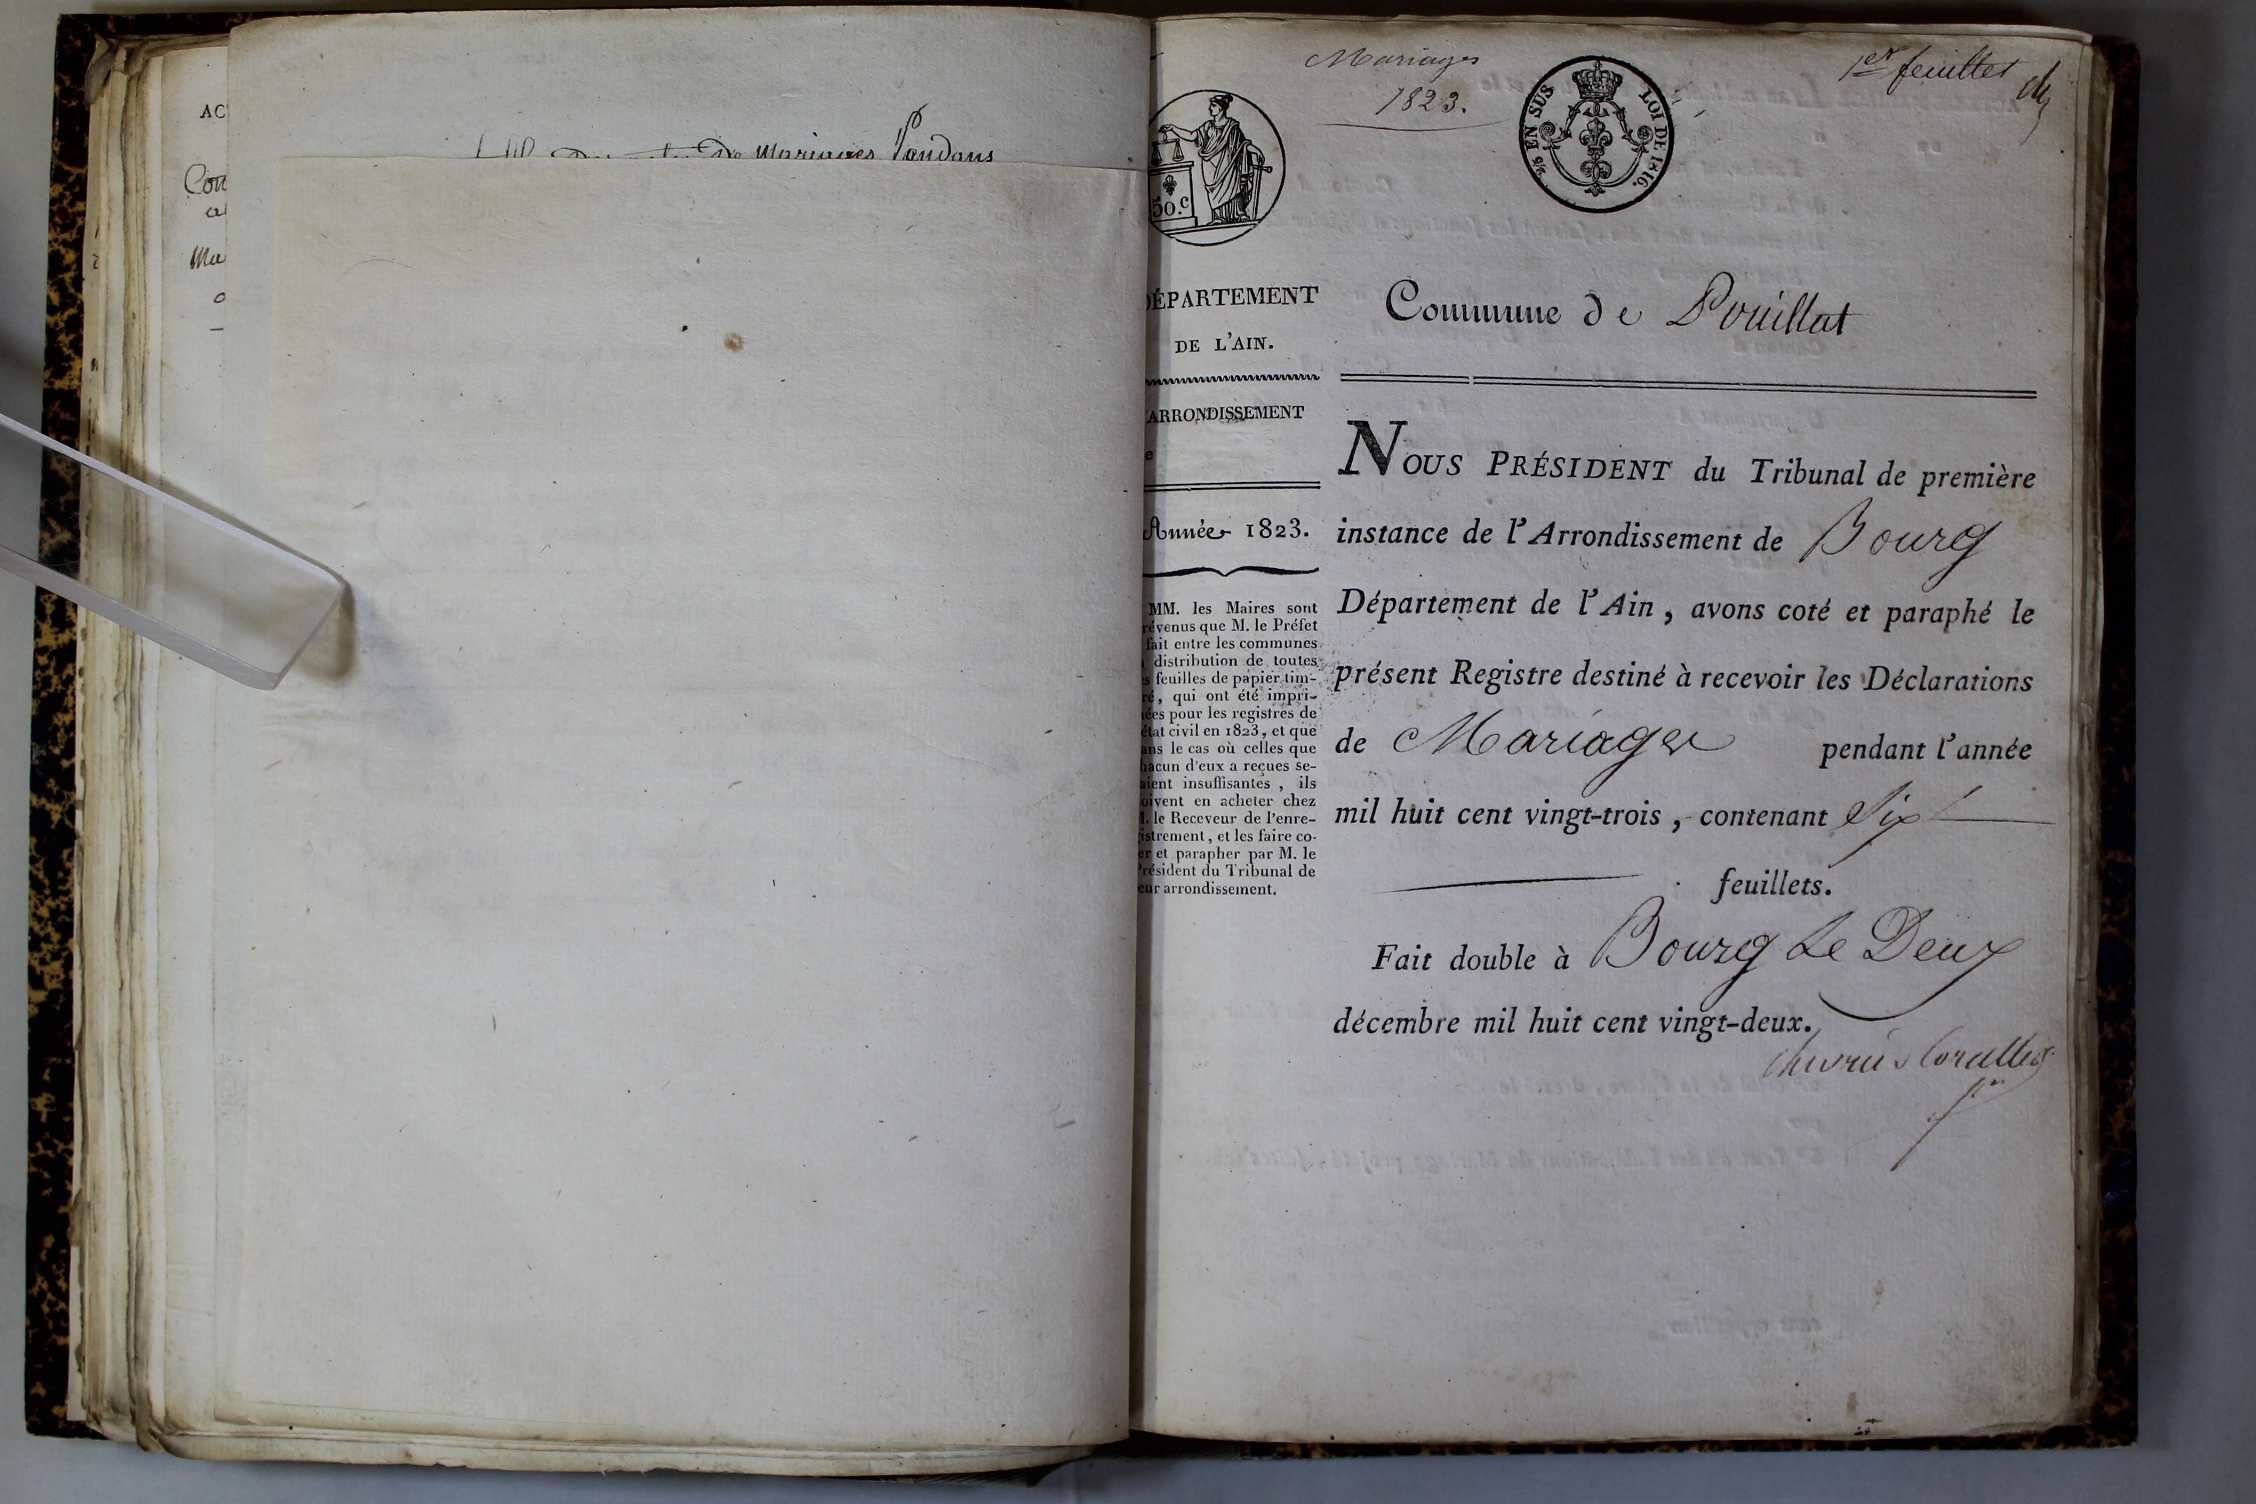 AC
Con
al
Ma
o
de Mariages Pendans
Mariages
1823.
1er feuillet
50.c
EN SUS
LOI DE 1816.
DÉPARTEMENT
DE L'AIN.
ARRONDISSEMENT
e
Année 1823.
MM. les Maires sont
révenus que M. le Préfet
fait entre les communes
distribution de toutes
s feuilles de papier tim-
ré, qui ont été impri-
ées pour les registres de
état civil en 1823, et que
ans le cas où celles que
hacun d'eux a reçues se-
aient insuffisantes, ils
oivent en acheter chez
M. le Receveur de l'enre-
istrement, et les faire co-
er et parapher par M. le
Président du Tribunal de
eur arrondissement.
Commune de Pouillat
NOUS PRÉSIDENT du Tribunal de première
instance de l'Arrondissement de Bourg
Département de l'Ain, avons coté et paraphé le
présent Registre destiné à recevoir les Déclarations
de Mariages pendant l'année
mil huit cent vingt-trois, contenant Six
feuillets.
Fait double à Bourg Le Deux
décembre mil huit cent vingt-deux.